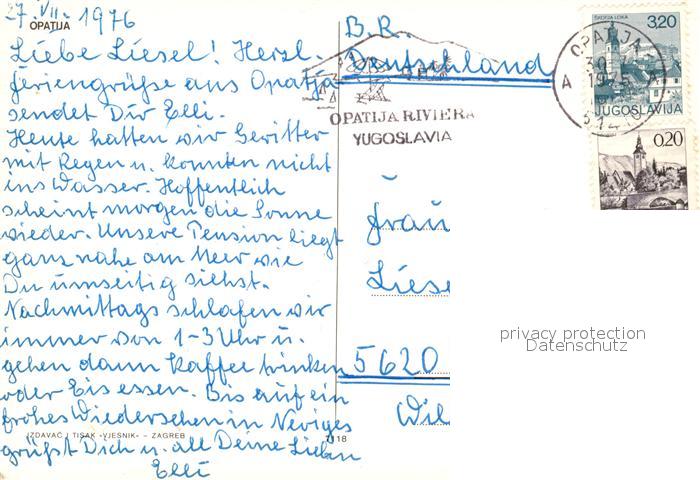 27. VII. 1976
OPATIJA
Liebe Liesel! Herzl.
Feriengrüße aus Opatija
sendet Dir Elli.
Heute hatten wir Gewitter
mit Regen u. konnten nicht
ins Wasser. Hoffentlich
scheint morgen die Sonne
wieder. Unsere Pension liegt
ganz nahe am Meer wie
Du umseitig siehst.
Nachmittags schlafen wir
immer von 1-3 Uhr u.
gehen dann Kaffee trinken
oder Eis essen. Bis auf ein
frohes Wiedersehen in Neviges
grüßt Dich u. all Deine Lieben
Elli
IZDAVAČ I TISAK «VJESNIK» – ZAGREB
7118
B.R.
Deutschland
OPATIJA RIVIERA
YUGOSLAVIA
OPATIJA
ŠKOFJA LOKA
3,20
JUGOSLAVIJA
0,20
Frau
Liese
5620
Wil
privacy protection
Datenschutz